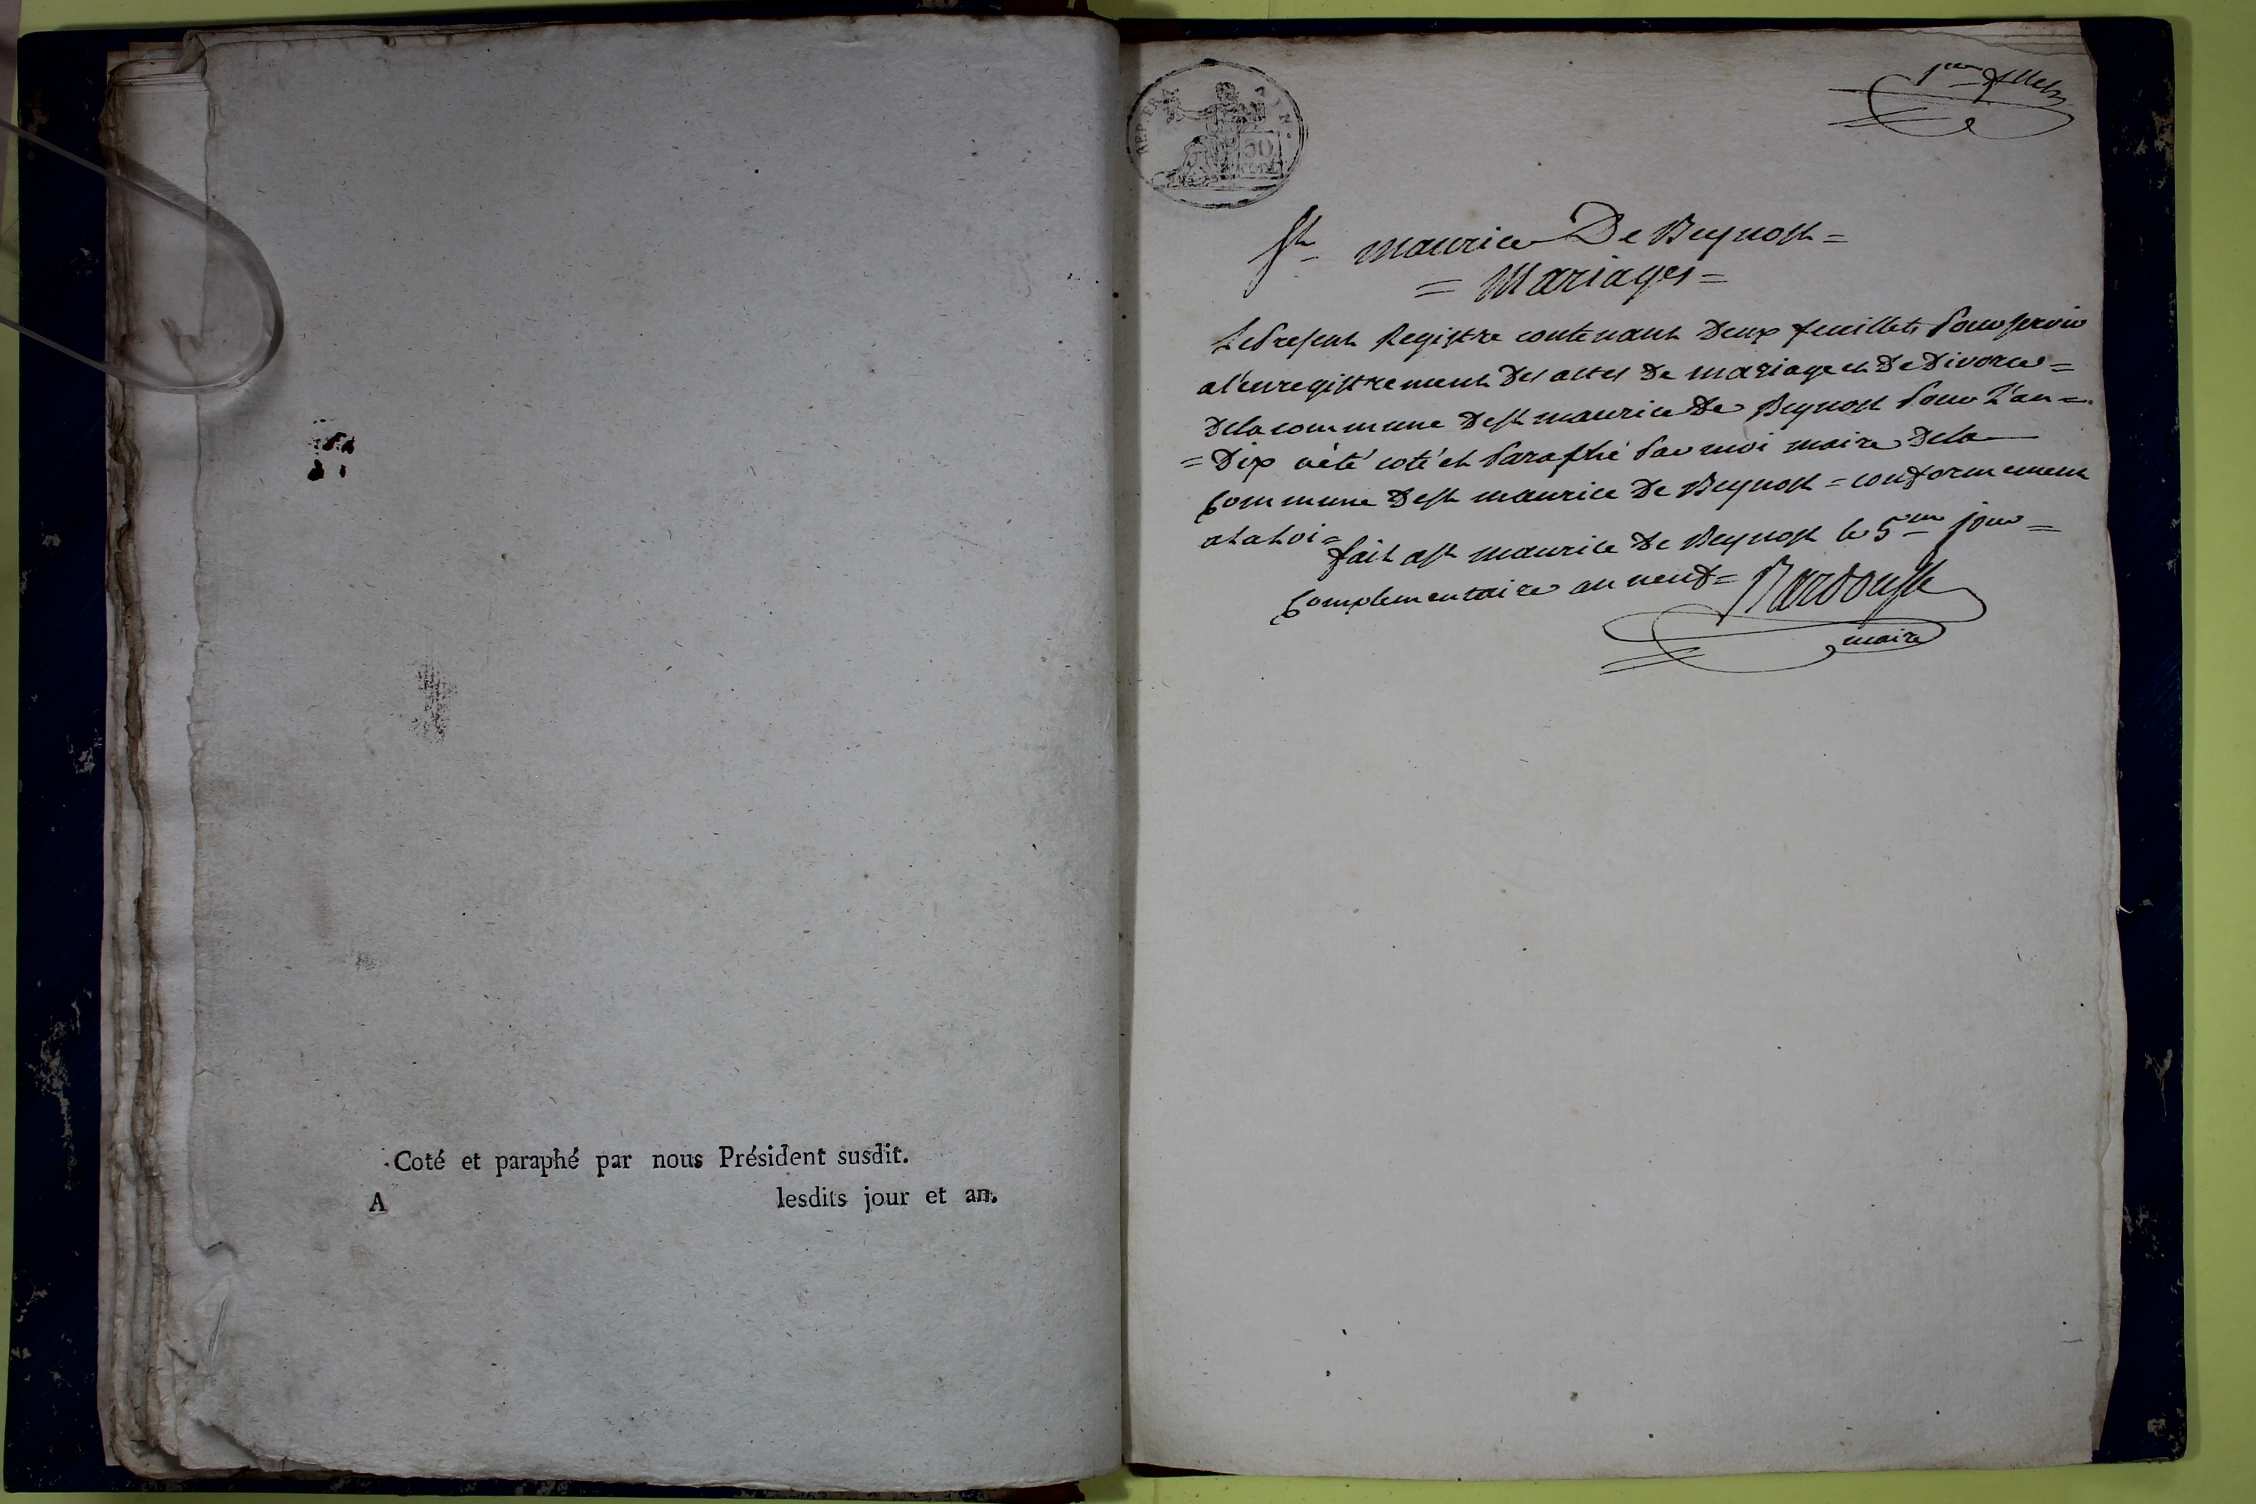 Coté et paraphé par nous Président susdit.
A lesdits jour et an.
REP. FRA
50
1er
St maurice De Beynost =
= Mariages =
Le Present Registre contenant Deux feuillets Pour servir
a l'enregistrement Des actes De mariage et De Divorce =
De la commune De st maurice De Beynost Pour L'an =
= Dix a été coté et Paraphé Par moi maire De la
Commune De st maurice De Beynost = conformement
a La Loi =
fait a st maurice De Beynost le 5me jour =
Complementaire an neuf =
maire